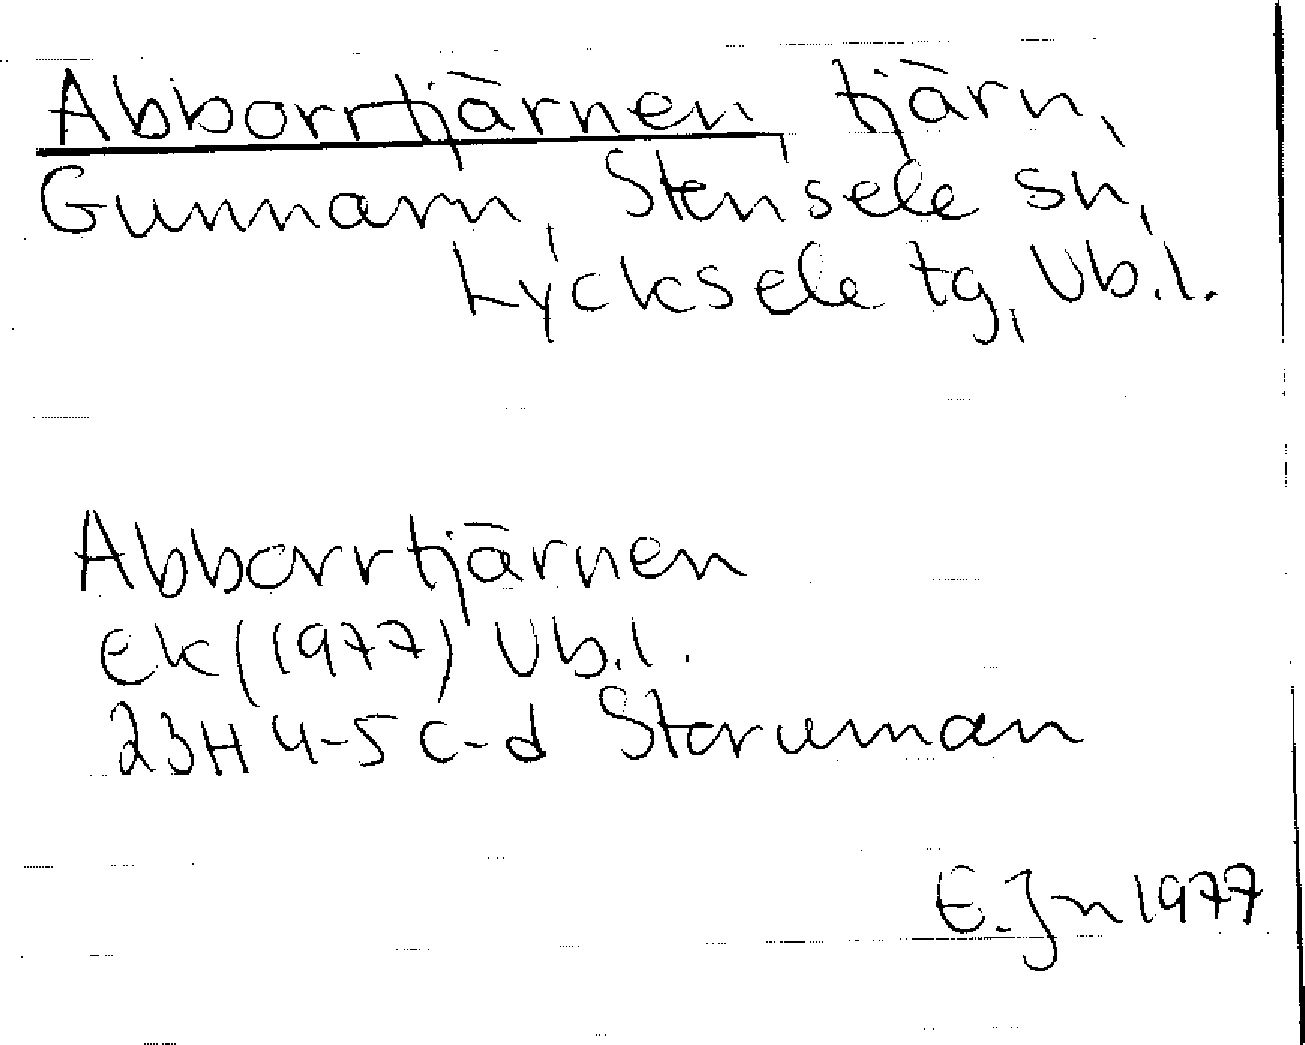 Abborrtjärnen, tjärn,
Gunnarn, Stensele sn,
Lycksele tg, Vb.l.
Abborrtjärnen
Ek (1977) Vb.l.
23H 4-5 c-d Storuman
E.Jn 1977